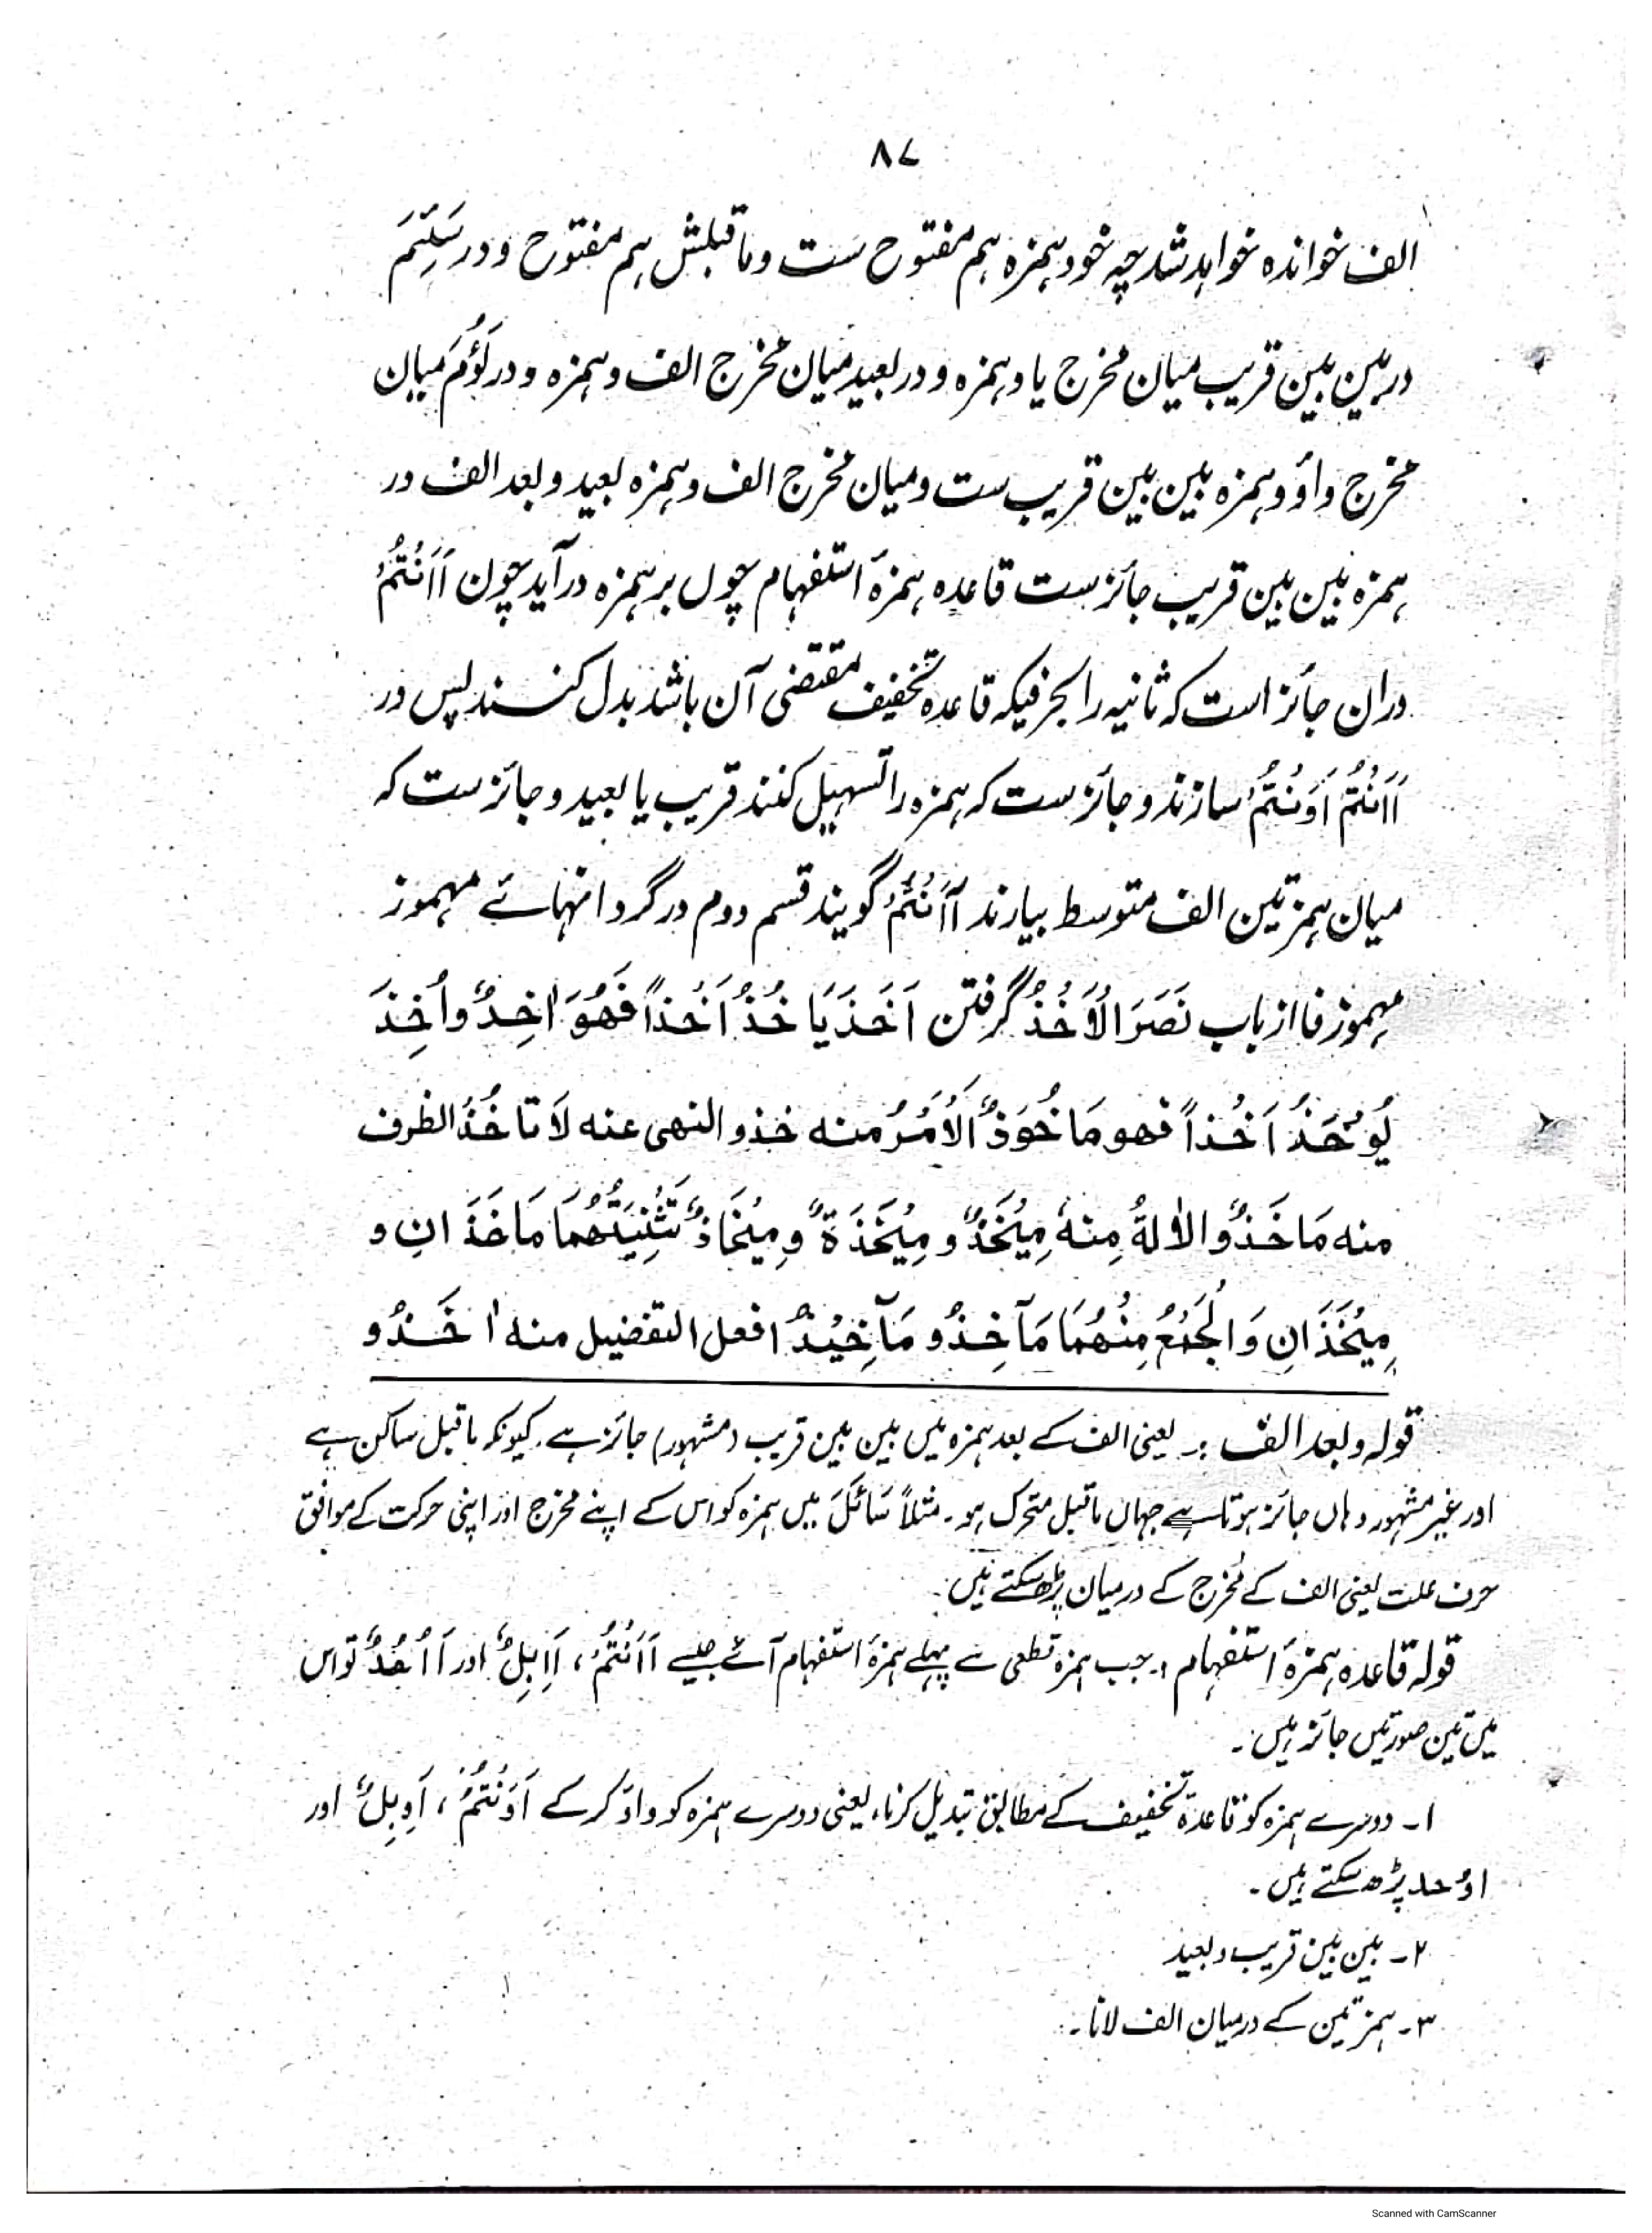 ۸۷
الف خوانده خواہد شد چہ خود ہمزہ ہم مفتوح ست وماقبلش ہم مفتوح و در سَئِمَ
در بین بین قریب میان مخرج یا و ہمزہ و در بعید میان مخرج الف و ہمزہ و در لَؤُمَ میان
مخرج واؤ و ہمزہ بین بین قریب ست و میان مخرج الف و ہمزہ بعید و بعد الف در
ہمزہ بین بین قریب جائز ست قاعدہ ہمزۂ استفہام چوں بر ہمزہ در آید چون أَأَنْتُمْ
دران جائز است کہ ثانیہ را بحرفیکہ قاعدہ تخفیف مقتضی آن باشد بدل کنند پس در
أَأَنْتُمْ أَوَنْتُمْ سازند و جائز ست کہ ہمزہ را تسہیل کنند قریب یا بعید و جائز ست کہ
میان ہمزتین الف متوسط بیارند آأَنْتُمْ گویند قسم دوم در گردانہائے مہموز
مہموز فا از باب نَصَرَ الْاَخْذُ گرفتن اَخَذَ یَاخُذُ اَخْذاً فَهُوَ اٰخِذٌ واُخِذَ
یُوْخَذُ اَخْذاً فهو مَاخُوْذٌ اَلْاَمْرُ منه خذ و النهی عنه لَا تاخُذْ الظرف
منه مَاخَذٌ والاٰلةُ مِنهُ مِیْخَذٌ و مِیْخَذَةٌ و مِیْخَاذٌ تَثْنِیَتُهُمَا مَاخَذَانِ و
مِیْخَذَانِ وَ الْجَمْعُ مِنْهُمَا مَآخِذُ و مَآخِیْذُ افعل التفضیل منه اٰخَذُ و
قولہ و بعد الف :۔ یعنی الف کے بعد ہمزہ میں بین بین قریب (مشہور) جائز ہے۔ کیونکہ ماقبل ساکن ہے
اور غیر مشہور وہاں جائز ہوتا ہے جہاں ماقبل متحرک ہو۔ مثلاً سَائَلَ میں ہمزہ کو اس کے اپنے مخرج اور اپنی حرکت کے موافق
حرف علت یعنی الف کے مخرج کے درمیان پڑھ سکتے ہیں۔
قولہ قاعدہ ہمزۂ استفہام :۔ جب ہمزہ قطعی سے پہلے ہمزۂ استفہام آئے جیسے أَأَنْتُمْ، أَاِبِلٌ اور أَاُحُدٌ تو اس
میں تین صورتیں جائز ہیں۔
۱۔ دوسرے ہمزہ کو قاعدۂ تخفیف کے مطابق تبدیل کرنا، یعنی دوسرے ہمزہ کو واؤ کر کے أَوَنْتُمْ، أَوِبِلٌ اور
اوُحد پڑھ سکتے ہیں۔
۲۔ بین بین قریب و بعید
۳۔ ہمزتین کے درمیان الف لانا۔
Scanned with CamScanner